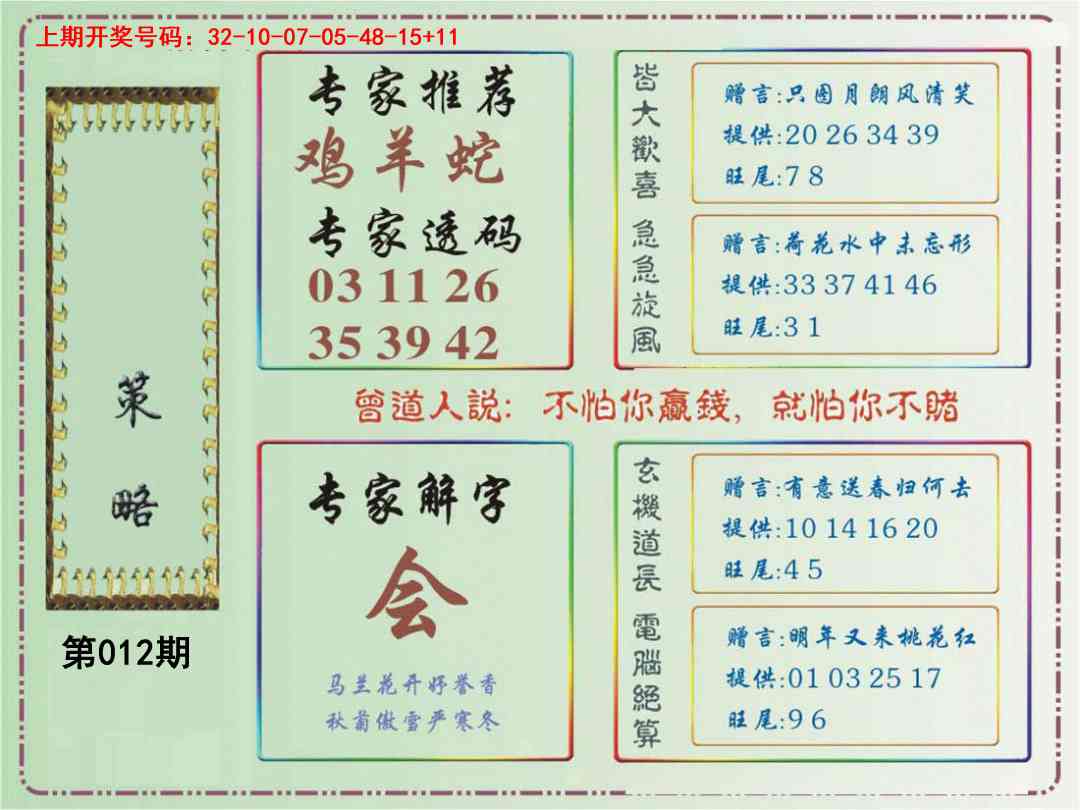 上期开奖号码：32-10-07-05-48-15+11
策略
第012期
专家推荐
鸡羊蛇
专家透码
03 11 26
35 39 42
皆大歡喜
赠言:只图月朗风清笑
提供:20 26 34 39
旺尾:7 8
急急旋風
赠言:荷花水中未忘形
提供:33 37 41 46
旺尾:3 1
曾道人説：不怕你赢錢，就怕你不賭
专家解字
会
马兰花开好誉香
秋菊傲雪严寒冬
玄機道長
赠言:有意送春归何去
提供:10 14 16 20
旺尾:4 5
電腦絕算
赠言:明年又来桃花红
提供:01 03 25 17
旺尾:9 6